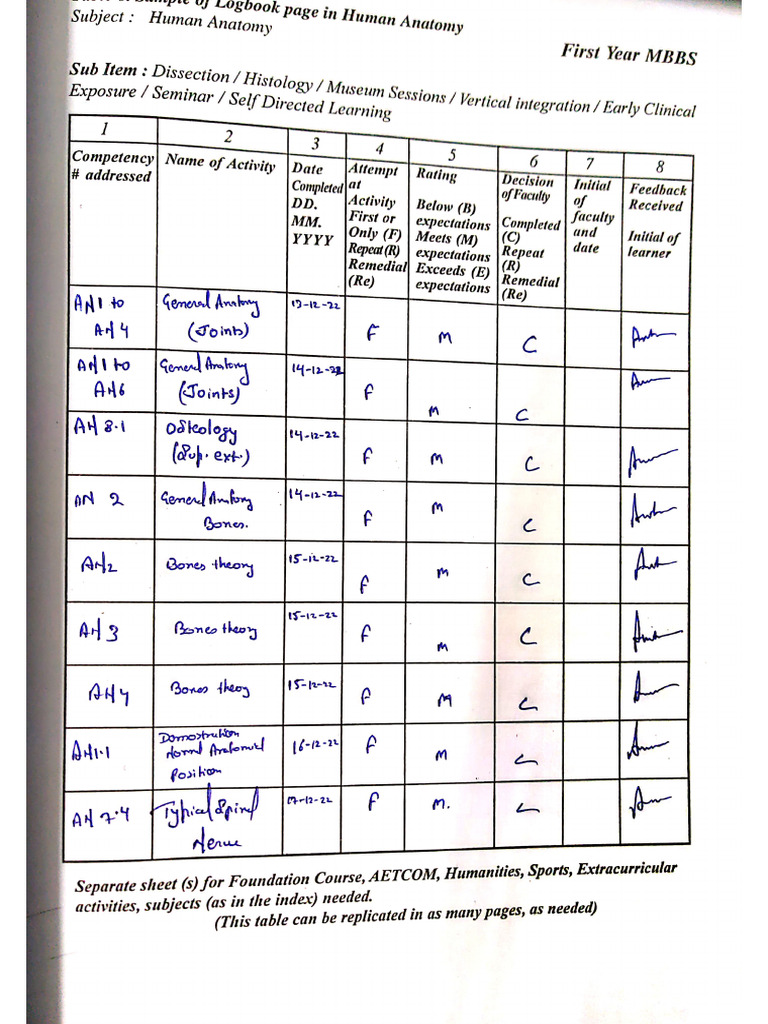 Sample of Logbook page in Human Anatomy
Subject : Human Anatomy
First Year MBBS
Sub Item : Dissection / Histology / Museum Sessions / Vertical integration / Early Clinical
Exposure / Seminar / Self Directed Learning
1 2 3 4 5 6 7 8
Competency # addressed | Name of Activity | Date Completed DD. MM. YYYY | Attempt at Activity First or Only (F) Repeat (R) Remedial (Re) | Rating Below (B) expectations Meets (M) expectations Exceeds (E) expectations | Decision of Faculty Completed (C) Repeat (R) Remedial (Re) | Initial of faculty and date | Feedback Received Initial of learner
AN1 to AN 4 | General Anatomy (Joints) | 13-12-22 | F | M | C
AN1 to AN6 | General Anatomy (Joints) | 14-12-22 | F | M | C
AN 8.1 | Osteology (Sup. ext.) | 14-12-22 | F | M | C
AN 2 | General Anatomy Bones. | 14-12-22 | F | M | C
AN2 | Bones theory | 15-12-22 | F | M | C
AN 3 | Bones theory | 15-12-22 | F | M | C
AN 4 | Bones theoy | 15-12-22 | F | M | C
AN1.1 | Position | 16-12-22 | F | M | C
AN 7.4 | Typical Spinal Nerve | F | M. | C
Separate sheet (s) for Foundation Course, AETCOM, Humanities, Sports, Extracurricular
activities, subjects (as in the index) needed.
(This table can be replicated in as many pages, as needed)